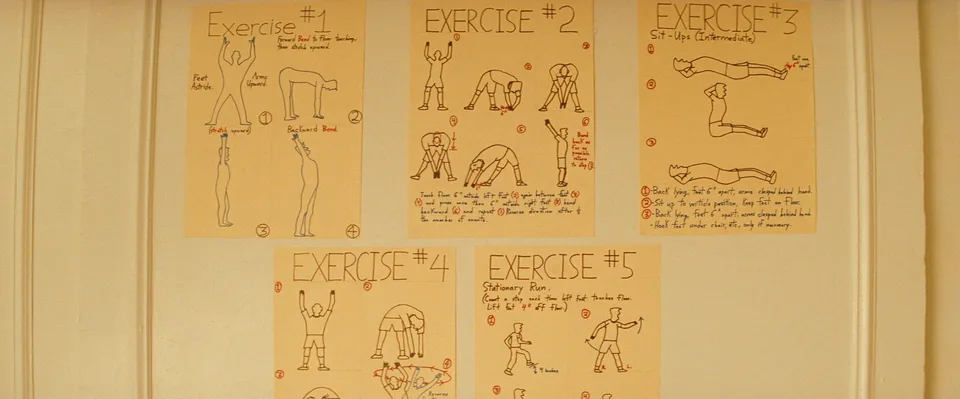 Exercise #1
Forward Bend to floor touching,
then stretch upward.
Feet
Astride.
Arms
Upward.
1
2
(stretch upward)
Backward Bend
3
4
EXERCISE #2
1
2
3
4
5
6
6"
Bend
back as
far as
possible
return
to step
Touch floor 6" outside left foot (2) again between feet (3)
(4) and press once then 6" outside right foot (5) bend
backward (6) and repeat (1) Reverse direction after ½
the number of counts.
EXERCISE #3
Sit-Ups (Intermediate)
1
Feet are
6" apart
2
3
1-Back lying, feet 6" apart, arms clasped behind head.
2-Sit up to verticle position, Keep feet on floor.
3-Back lying, feet 6" apart, arms clasped behind head
-Hook feet under chair, etc., only if necessary.
EXERCISE #4
1
2
3
4
Reverse
EXERCISE #5
Stationary Run.
(Count a step each time left foot touches floor.
Lift feet 4" off floor.)
1
2
4 inches
R.
L.
3
4